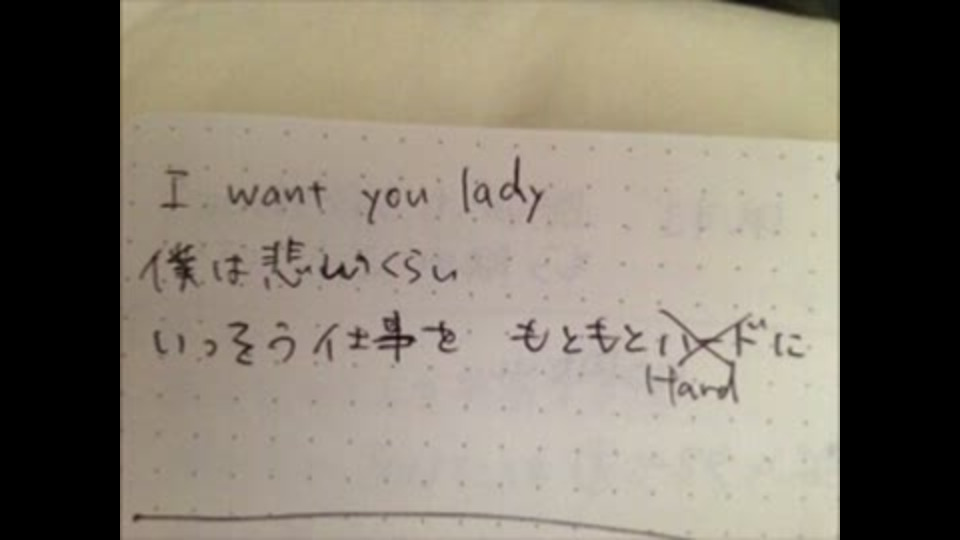 I want you lady
僕は悲しいくらい
いっそう仕事を もともとハードに
Hard